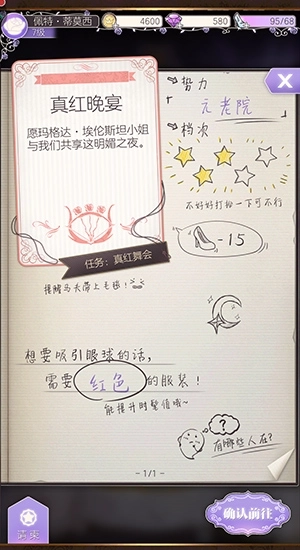 佩特·蒂莫西
7级
4600
580
95/68
真红晚宴
愿玛格达·埃伦斯坦小姐
与我们共享这明媚之夜。
任务：真红舞会
势力
元老院
档次
不好好打扮一下可不行
-15
提醒马夫带上毛毯！
想要吸引眼球的话，
需要 红色 的服装！
能提升时髦值哦~
?
有哪些人在？
-1/1-
请柬
确认前往